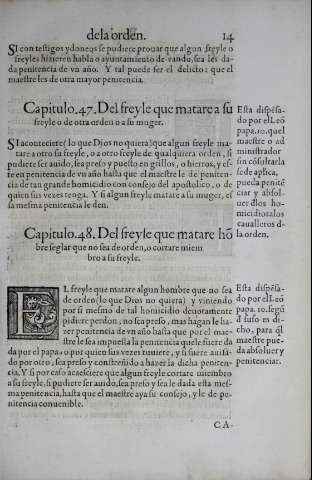 de la orden. 14
SI con testigos ydoneos se pudiere prouar que algun freyle o
freyles hizieren habla o ayuntamiento de vando, sea les da-
da penitencia de vn año. Y tal puede ser el delicto: que el
maestre les de otra mayor penitencia.
Capitulo.47. Del freyle que matare a su
freyle o de otra orden o a su muger.
SI aconteciere (lo que Dios no quiera) que algun freyle ma-
tare a otro su freyle, o a otro freyle de qualquiera orden, si
pudiere ser auido, sea preso y puesto en grillos, o hierros, y es-
te en penitencia de vn año hasta que el maestre le de peniten-
cia de tan grande homicidio con consejo del apostolico, o de
quien sus vezes tenga. Y si algun freyle matare a su muger, es
sa mesma penitencia le den.
Esta dispẽsa-
do por el Leõ
papa.10.quel
maestre o ad
ministrador
sin cõsultarla
sede aplica,
pueda penitẽ
ciar y absol-
uer dlos ho-
micidios a los
caualleros d-
la orden.
Capitulo.48. Del freyle que matare hõ
bre seglar que no sea de orden, o cortare miem
bro a su freyle.
EL freyle que matare algun hombre que no sea
de orden (lo que Dios no quiera) y viniendo
por si mesmo de tal homicidio deuotamente
pidiere perdon, no sea preso, mas hagan le ha-
zer penitencia de vn año hasta que por el maes-
tre le sea impuesta la penitencia quele fuere da
da por el papa, o por quien sus vezes tuuiere, y si fuere auisa-
do por otro, sea preso y constreñido a hazer la dicha peniten-
cia. Y si por caso acaesciere que algun freyle cortare miembro
a su freyle, si pudiere ser auido, sea preso y sea le dada esta mes-
ma penitencia, hasta que el maestre aya su consejo, y le de pe-
nitencia conuenible.
Esta dispẽsa-
do por el Leõ
papa.10. segũ
d suso es di-
cho, para q̃l
maestre pue-
da absoluer y
penitenciar.
CA-